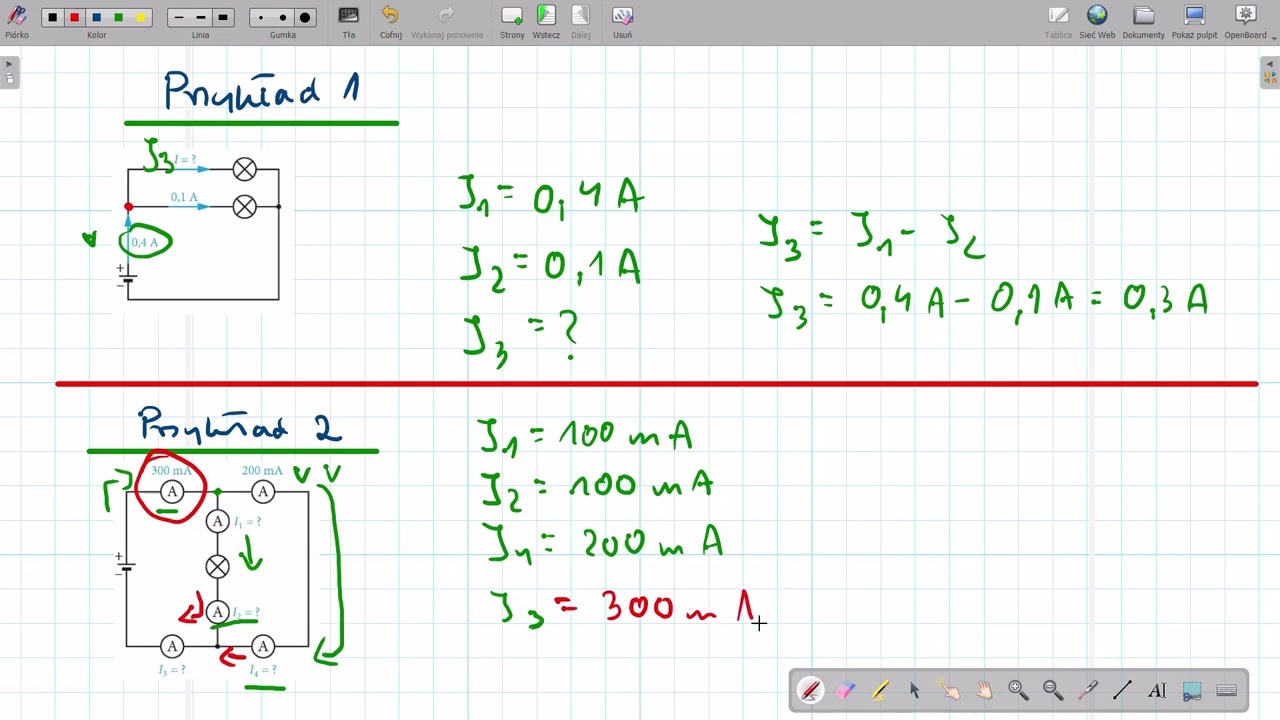 Piórko
Kolor
Linia
Gumka
Tła
Cofnij
Wykonaj ponownie
Strony
Wstecz
Dalej
Usuń
Tablica
Sieć Web
Dokumenty
Pokaż pulpit
OpenBoard
Przykład 1
I3 I = ?
0,1 A
0,4 A
+
−
I1 = 0,4 A
I2 = 0,1 A
I3 = ?
I3 = I1 - I2
I3 = 0,4 A - 0,1 A = 0,3 A
Przykład 2
300 mA
200 mA
A
A
A
I1 = ?
+
−
A
I2 = ?
A
A
I3 = ?
I4 = ?
I1 = 100 mA
I2 = 100 mA
I4 = 200 mA
I3 = 300 m A
AI